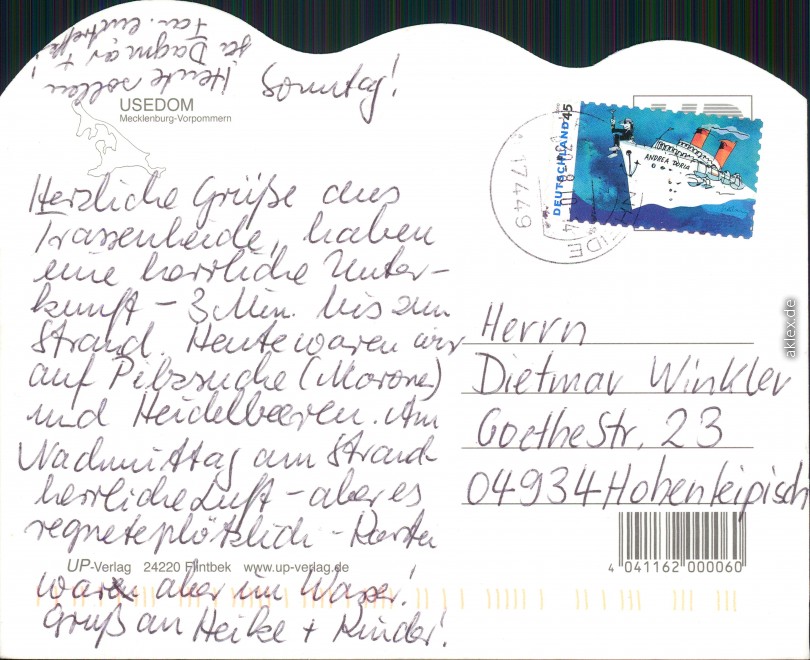 Heute sollen
ja Dagmar +
Fam. eintreffen!
Sonntag!
USEDOM
Mecklenburg-Vorpommern
Herzliche Grüße aus
Trassenheide, haben
eine herrliche Unter-
kunft – 3 Min. bis zum
Strand. Heute waren wir
auf Pilzsuche (Marone)
und Heidelbeeren. Am
Nachmittag am Strand
herrliche Luft – aber es
regnete plötzlich –
UP-Verlag 24220 Flintbek www.up-verlag.de
waren aber im Wasser!
Gruß an Heike + Kinder!
DEUTSCHLAND 45
ANDREA DORIA
17449
Herrn
Dietmar Winkler
Goethestr. 23
04934 Hohenleipisch
4 041162 000060
aklex.de